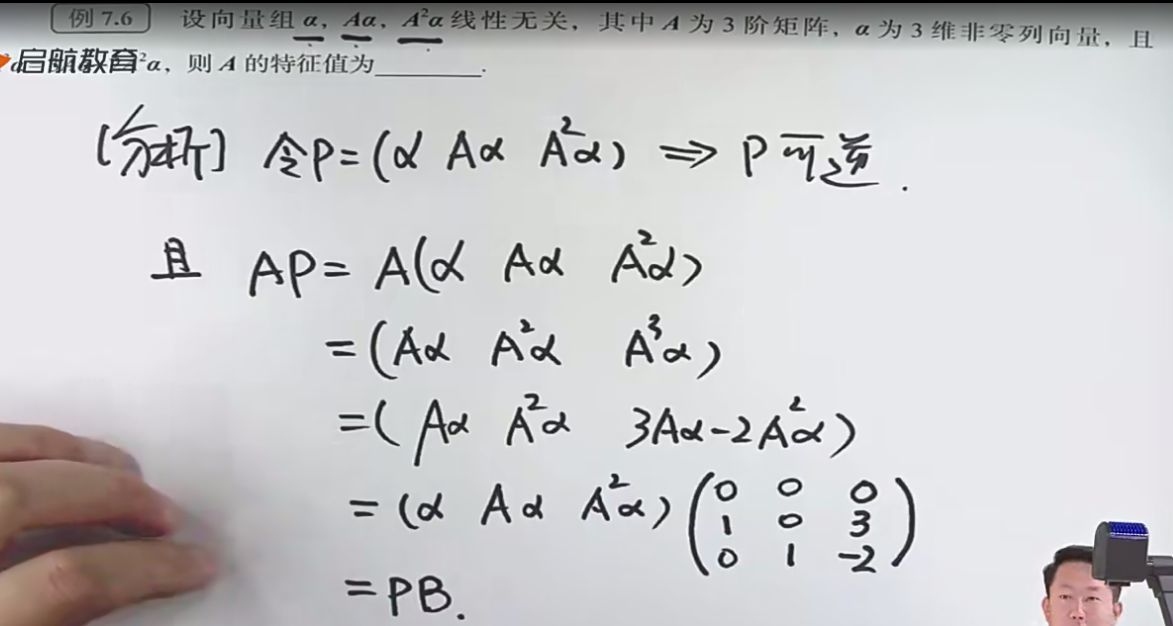 例 7.6 设向量组 α, Aα, A²α 线性无关, 其中 A 为 3 阶矩阵, α 为 3 维非零列向量, 且
启航教育 ²α, 则 A 的特征值为________.
[分析] 令P=(α Aα A²α) ⇒ P可逆.
且 AP= A(α Aα A²α)
=(Aα A²α A³α)
=(Aα A²α 3Aα-2A²α)
=(α Aα A²α)(0 0 0
1 0 3
0 1 -2)
=PB.